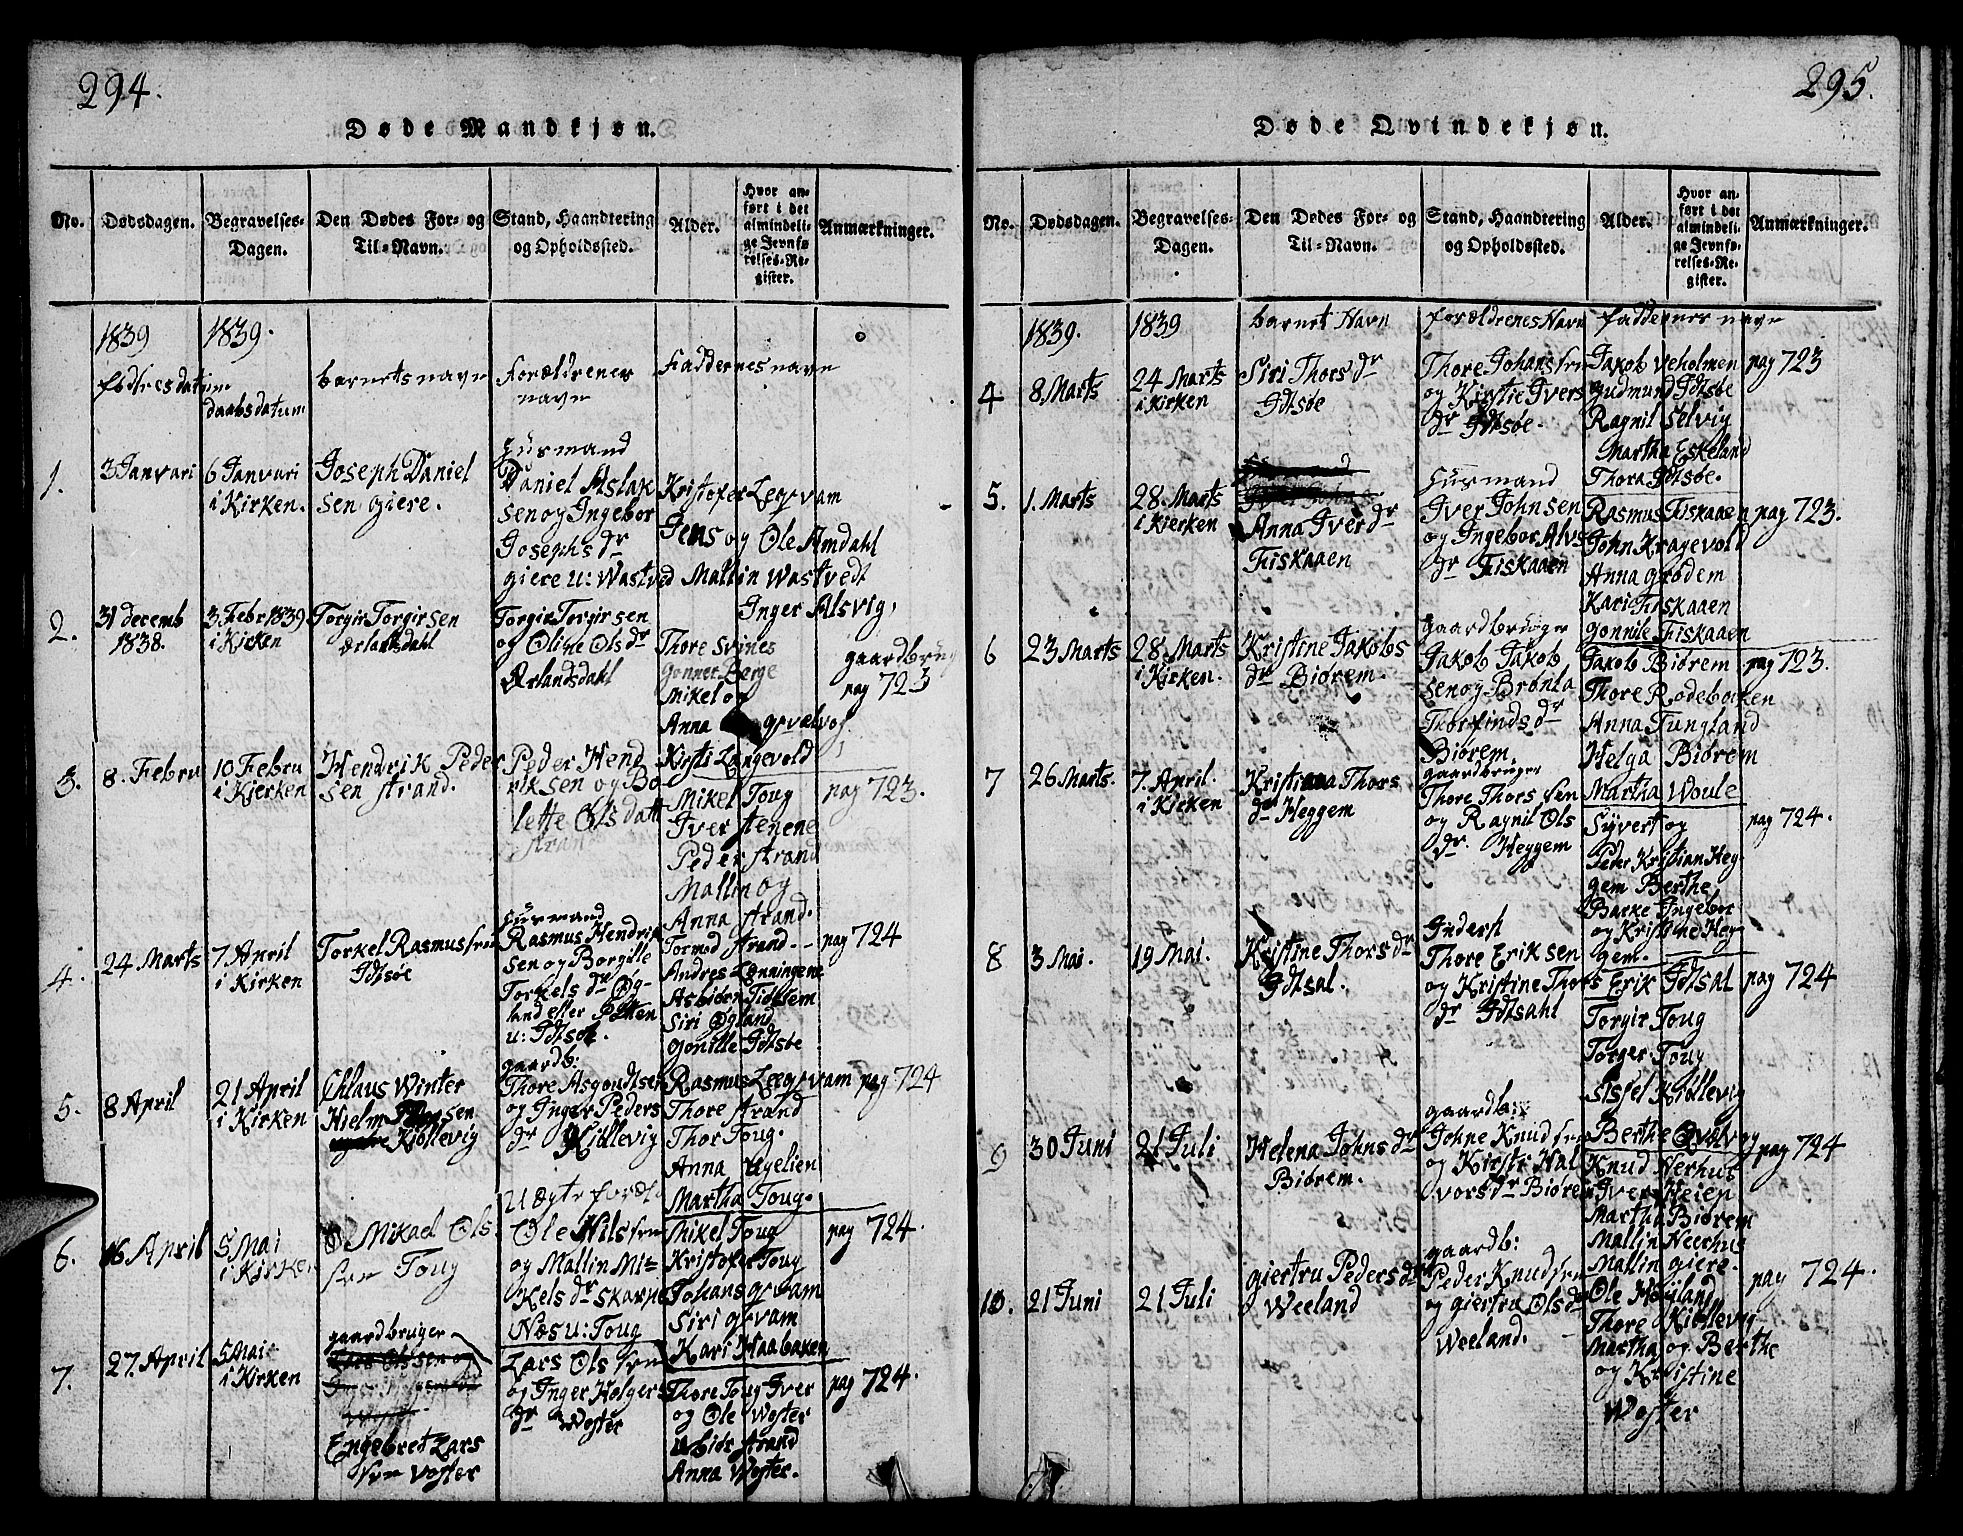 294.
Døde Mandkjøn.
No.
Dødsdagen.
Begravelses-
Dagen.
Den Dødes For- og
Til-Navn.
Stand, Haandtering
og Opholdssted.
Alder.
Hvor an-
ført i det
almindeli-
ge Jevnfø-
relses-Re-
gister.
Anmærkninger.
1839
fødsresdatum
1839.
daabsdatum
barnetsnavn
Forældrenes
navn
Faddernesnavne
1.
3 Januari
6 Januari
i Kirken.
Joseph Daniel
sen giere.
Husmand
Daniel Aslak
sen og Ingebor
Josephs dr
giere u: Wastved
Kristofer Legsvam
Jens og Ole Amdahl
Mallin Wastvedt
Inger Alsvig,
2.
31 decemb
1838.
3. Febr 1839
i Kirken
Torgir Torgirsen
Ørlandsdahl
Torgir Torgirsen
og Oline Ols dr
Ørlandsdahl
Thore Svines
Gonner Berge
Mikel og
Anna
Kirsti Langevold
gaardbrug
pag 723
3.
8. Febru
10 Febru
i Kierken
Hendrik Peder
sen strand.
Peder Hend
riksen og Bo
lette Ols datt
strand
Mikel Toug
Iver stenene
Peder strand
Mallin og
Anna strand.
pag 723.
4.
24 Marts
7 April
i Kirken
Torkel Rasmussen
Idtsøe
Husmand
Rasmus Hendrik
sen og Borgille
Torkels dr Øg-
land eller Potten
u: Idtsøe.
Tormod strand
Andres Lønningene
Asbiørn Tidesem
Siri Øgland
Gonille Idtsøe
pag 724
5.
8 April
21 April
i Kirken
Chlaus Winter
Hielm
Kiøllevig
gaardb:
Thore Asgoudtsen
og Inger Peders
dr Kiøllevig
Rasmus Legsvam
Thore strand
Thor Toug.
Anna Ugelien
Martha Toug.
pag 724
6.
16 April
5 Mai
i Kirken
Mikael Ols
sen Toug
Uægte forælr
Ole Nilssen
og Mallin Mi=
kels dr Skarpe
Næs u: Toug
Mikel Toug
Kristofer Toug
Johans gsvam
Siri gsvam
Kari Haabaken
pag 724.
7.
27. April
5 Mai
i Kirken
gaardbruger
Engebret Lars
sen Voster
Lars Ols sen
og Inger Holgers
dr Woster
Thore Toug Iver
og Ole Woster
strand
Anna Woster.
pag 724.
295.
Døde Qvindekjøn.
No.
Dødsdagen.
Begravelses-
Dagen.
Den Dødes For- og
Til-Navn.
Stand, Haandtering
og Opholdssted.
Alder.
Hvor an-
ført i det
almindeli-
ge Jevnfø-
relses-Re-
gister.
Anmærkninger.
1839.
1839
barnet Navn
forældrenes Navn
faddernes navne
4
8. Marts
24 Marts
i Kirken
Siri Thors dr
Idtsøe
Thore Johanssen
og Kirstie Ivers
dr Idtsøe.
Jakob veholmen
Gudmund Idtsøe
Ragnil Selvig
Martha Eskeland
Thora Idtsøe.
pag 723
5.
1. Marts
28. Marts
i Kierken
Anna Iver dr
Fiskaaen
Husmand
Iver Johnsen
og Ingebor Alvs
dr Fiskaaen
Rasmus Fiskaaen
John Kragevold
Anna grødem
Kari Fiskaaen
Gonnile Fiskaaen
pag 723.
6
23 Marts
28. Marts
i Kirken.
Kristine Jakobs
dr Biørem.
gaardbruger
Jakob Jakob
sen og Brønla
Thorfinds dr
Biørem.
Jakob Biørem
Thore Rødebakken
Anna Tungland
Helga Biørem
Martha Woule
pag 723.
7
26 Marts.
7. April.
i Kirken
Kristiana Thors
dr Heggem
gaardbruger
Thore Thors sen
og Ragnil Ols
dr. Heggem
Syvert og
Peder Kristian Heg-
gem Berthe
Barke Ingebor
og Kristine Heg-
gem.
pag 724.
8
3 Mai.
19 Mai.
Kristine Thors dr
Idtsal.
Inderst
Thore Eriksen
og Kristine Thors
dr Idtsahl
Erik Idtsal
Torgir Toug
Torger Toug
Sissel Kiøllevig
Berthe Qvalvog
pag 724
9
30 Juni
21 Juli
Helena Johns dr
Biørem.
gaardb:
Johne Knudsen
og Kirsti Hal
vors dr Biørem
Knud Nerhus
Iver Heien
Martha Biørem
Mallin Neerhus
Mallin giere.
pag 724
10.
21 Juni
21 Juli
Giertru Peders dr
Weeland
gaardb:
Peder Knudsen
og Giertru Ols dr
Weeland.
Ole Høyland
Thore Kiøllevig
Martha og Berthe
og Kristine
Woster
pag 724.